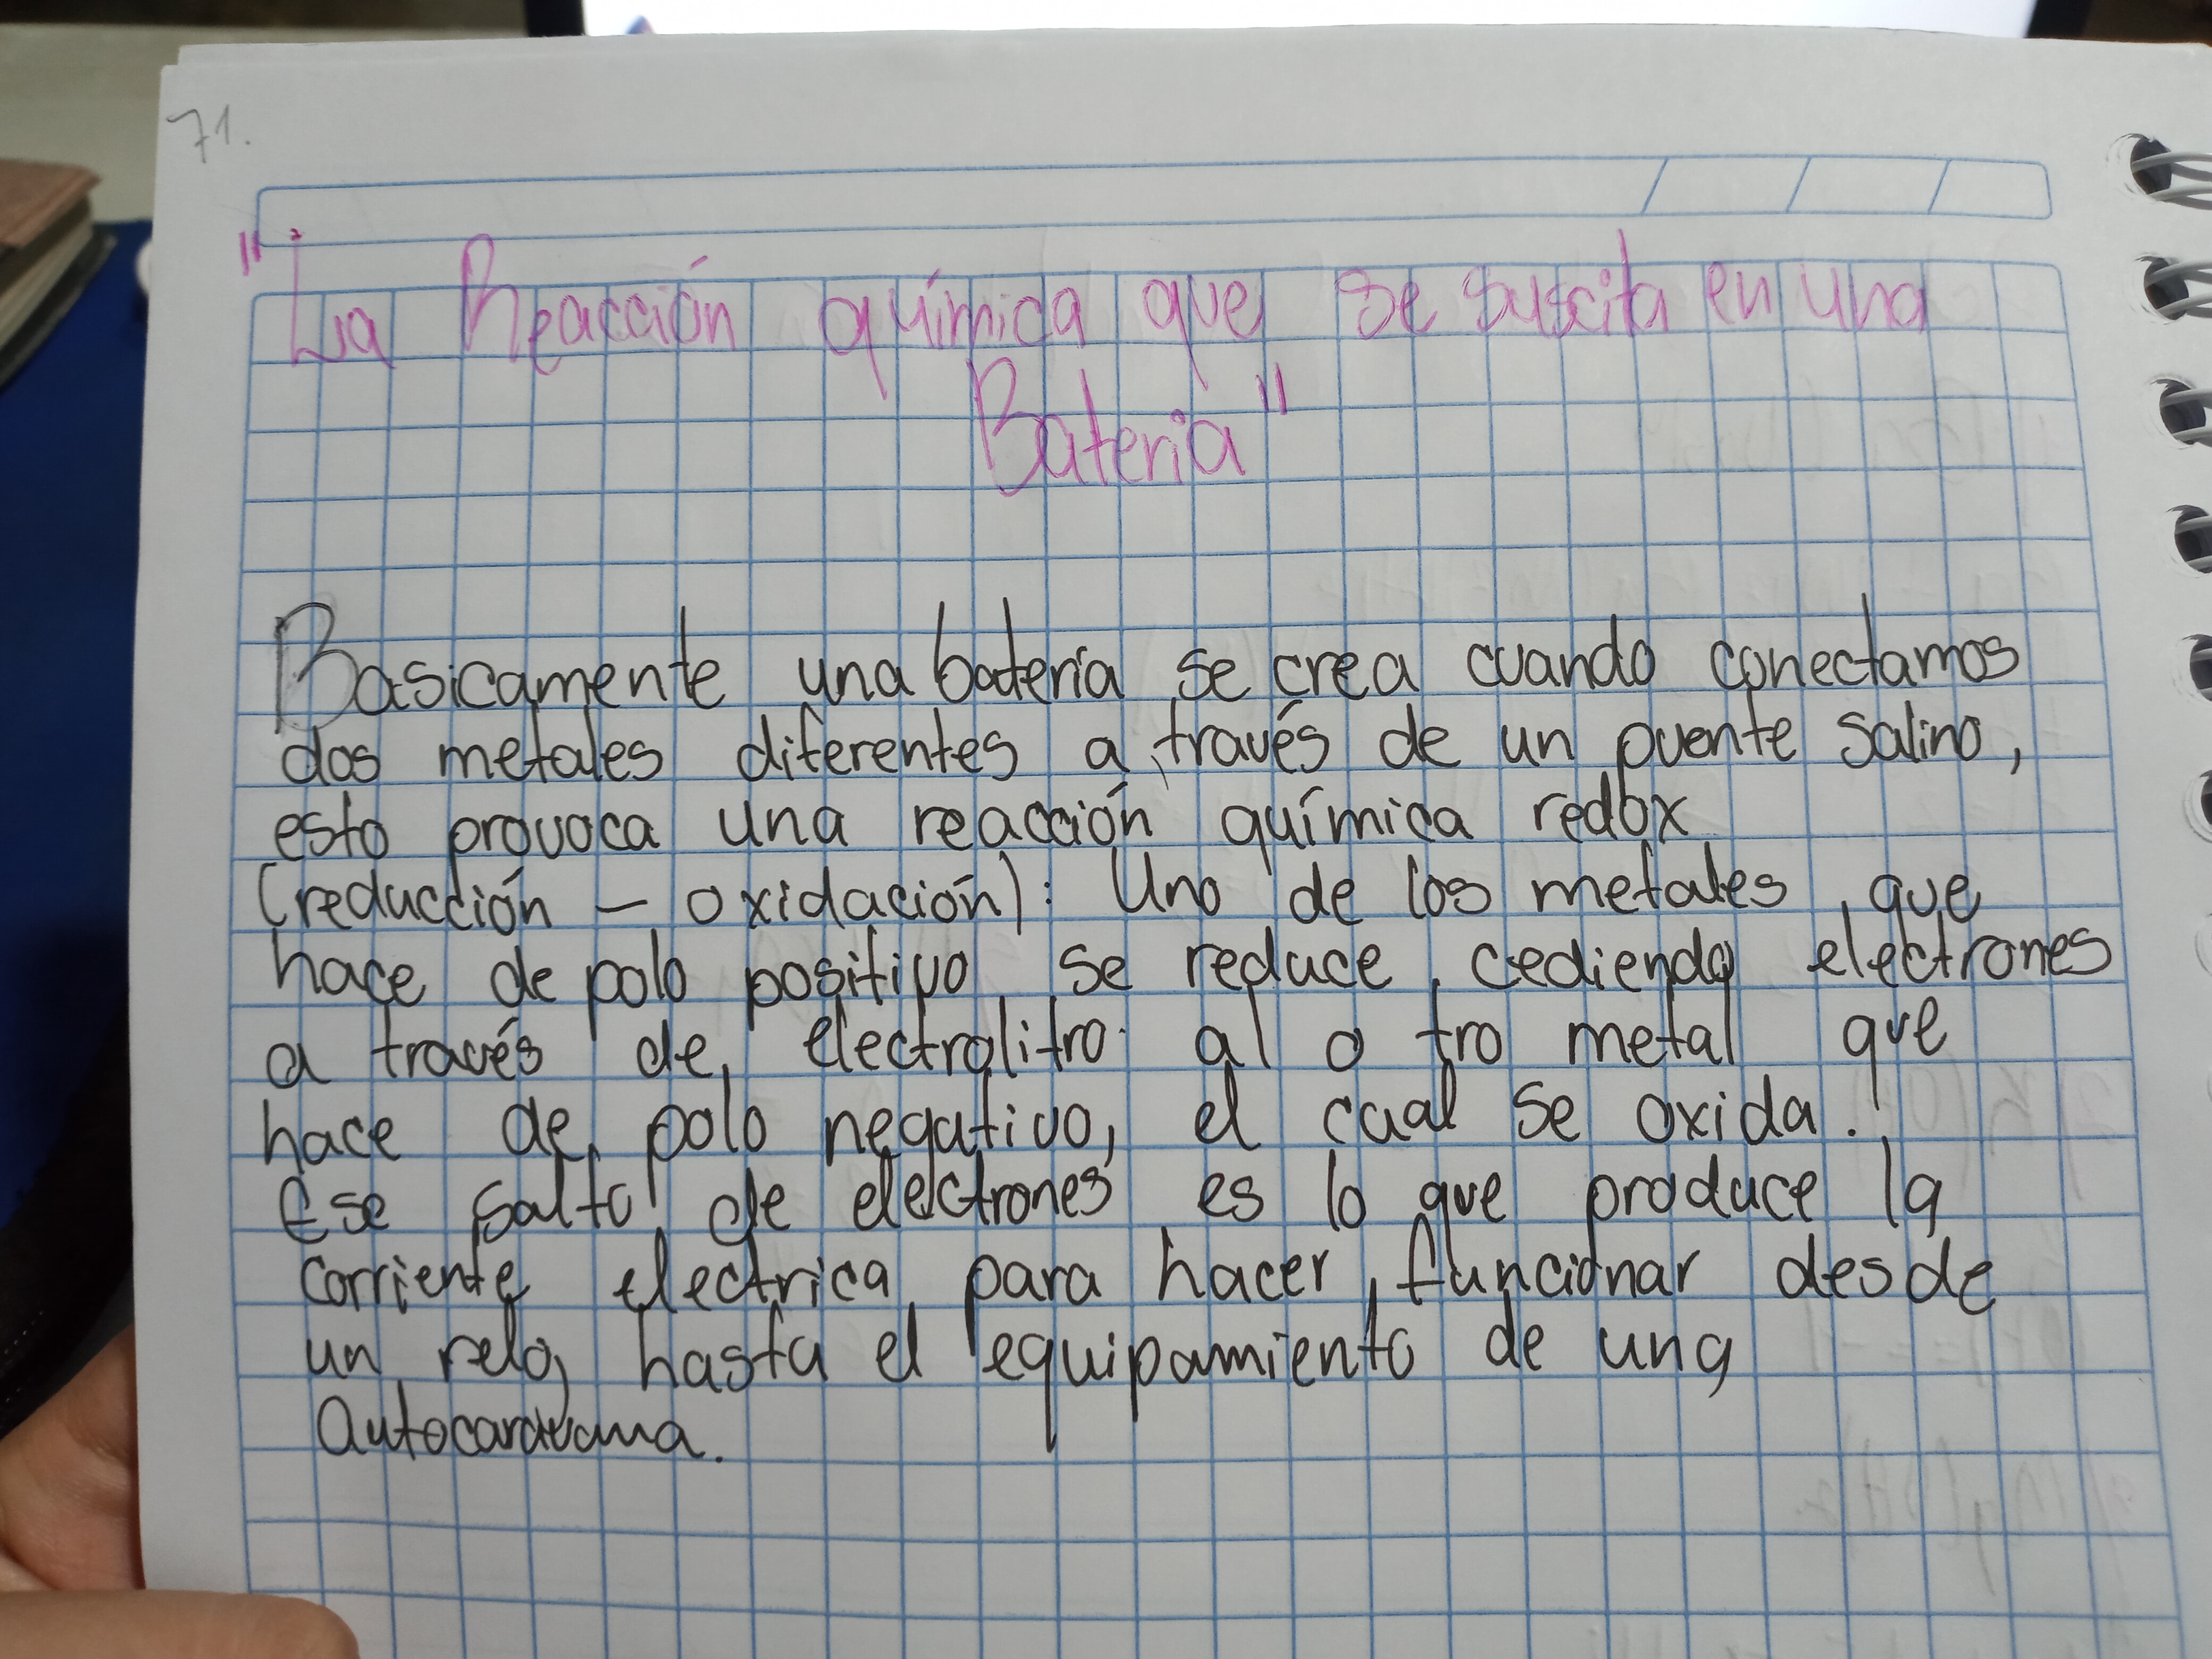 71.
"La Reacción química que se suscita en una
Bateria"
Basicamente una batería se crea cuando conectamos
dos metales diferentes a través de un puente salino,
esto provoca una reacción química redox
(reducción - oxidación): Uno de los metales, que
hace de polo positivo se reduce, cediendo electrones
a través de electrolitro al o tro metal que
hace de polo negativo, el cual se oxida.
Ese salto de electrones es lo que produce la
corriente electrica para hacer funcionar desde
un reloj hasta el equipamiento de una
Autocaravana.